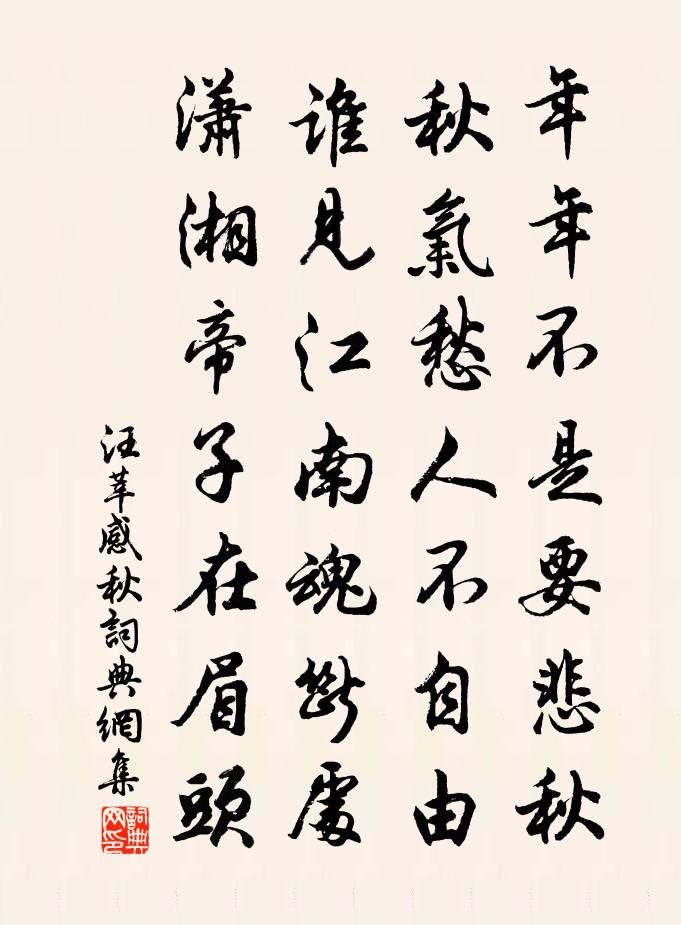 年年不是要悲秋
秋氣愁人不自由
誰見江南魂斷處
瀟湘帝子在眉頭
汪莘感秋詞典網集
詞典網印